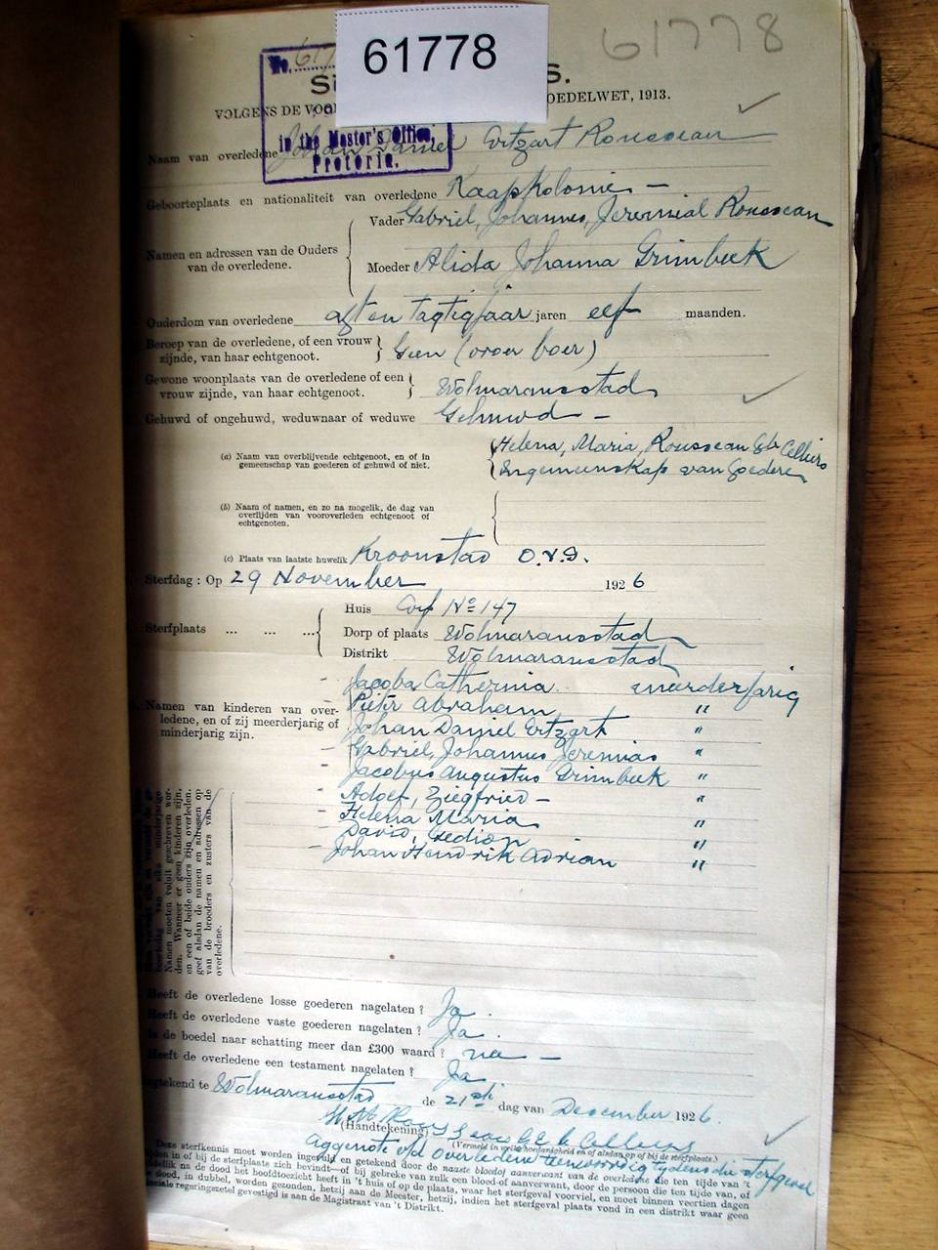 61778
61778
No.
in the Master's Office,
Pretoria.
VOLGENS DE BOEDELWET, 1913.
Naam van overledene Johan Daniel Ertzart Rousseau
Geboorteplaats en nationaliteit van overledene Kaapkolonie -
Vader Gabriel, Johannes, Jeremial Rousseau
Namen en adressen van de Ouders
van de overledene.
Moeder Alida Johanna Grimbeek
Ouderdom van overledene agt en tagtig jaar jaren elf maanden.
Beroep van de overledene, of een vrouw
zijnde, van haar echtgenoot. Geen (vroer boer)
Gewone woonplaats van de overledene of een
vrouw zijnde, van haar echtgenoot. Wolmaransstad
Gehuwd of ongehuwd, weduwnaar of weduwe Gehuwd -
(a) Naam van overblijvende echtgenoot, en of in
gemeenschap van goederen of gehuwd of niet.
Helena, Maria, Rousseau Geb Celliers
In gemeenskap van Goedere
(b) Naam of namen, en zo na mogelik, de dag van
overlijden van vooroverleden echtgenoot of
echtgenoten.
(c) Plaats van laatste huwelik Kroonstad O.V.S.
Sterfdag : Op 29 November 1926
Huis Erf No 147
Sterfplaats ... ... ... Dorp of plaats Wolmaransstad
Distrikt Wolmaransstad
Jacoba Catherina meerderjarig
Namen van kinderen van over-
ledene, en of zij meerderjarig of
minderjarig zijn.
Pieter Abraham "
Johan Daniel Ertzart "
Gabriel, Johannes Jeremias "
Jacobus Augustus Grimbeek "
Adolf, Ziegfried - "
Helena Maria "
David, Gedion "
Johan Hendrik Adrian "
Namen moeten voluit geschreven wor-
den. Wanneer er geen kinderen zijn,
en een of beide ouders zijn overleden,
geef alsdan de namen en adressen op
van de broeders en zusters van de
overledene.
Heeft de overledene losse goederen nagelaten ? Ja.
Heeft de overledene vaste goederen nagelaten ? Ja.
Is de boedel naar schatting meer dan £300 waard ? na -
Heeft de overledene een testament nagelaten ? Ja
Getekend te Wolmaransstad de 21ste dag van Desember 1926.
(Handtekening) Celliers
(Vermeld in welke hoedanigheid en of alsdan op of bij de sterfplaats.)
Aggenote v/d overledene teenwoordig tydens die sterfgeval
Deze sterfkennis moet worden ingevuld en getekend door de naaste bloed of aanverwant van de overledene die ten tijde van 't
lijden in of bij de sterfplaats zich bevindt—of bij gebreke van zulk een bloed of aanverwant, door de persoon die ten tijde van, of
dadelik na de dood het hoofdtoezicht heeft in 't huis of op de plaats, waar het sterfgeval voorviel, en moet binnen veertien dagen
de dood, in dubbel, worden gezonden, hetzij aan de Meester, hetzij, indien het sterfgeval plaats vond in een distrikt waar geen
reguleringszetel gevestigd is aan de Magistraat van 't Distrikt.